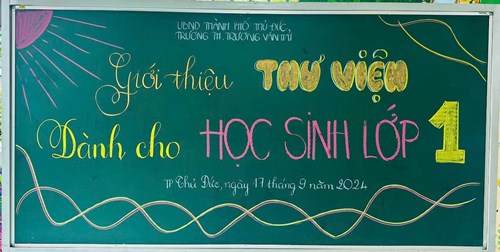 UBND THÀNH PHỐ THỦ ĐỨC
TRƯỜNG TH. TRƯƠNG VĂN THÌ
Giới thiệu THƯ VIỆN
Dành cho HỌC SINH LỚP 1
TP Thủ Đức, ngày 17 tháng 9 năm 2024